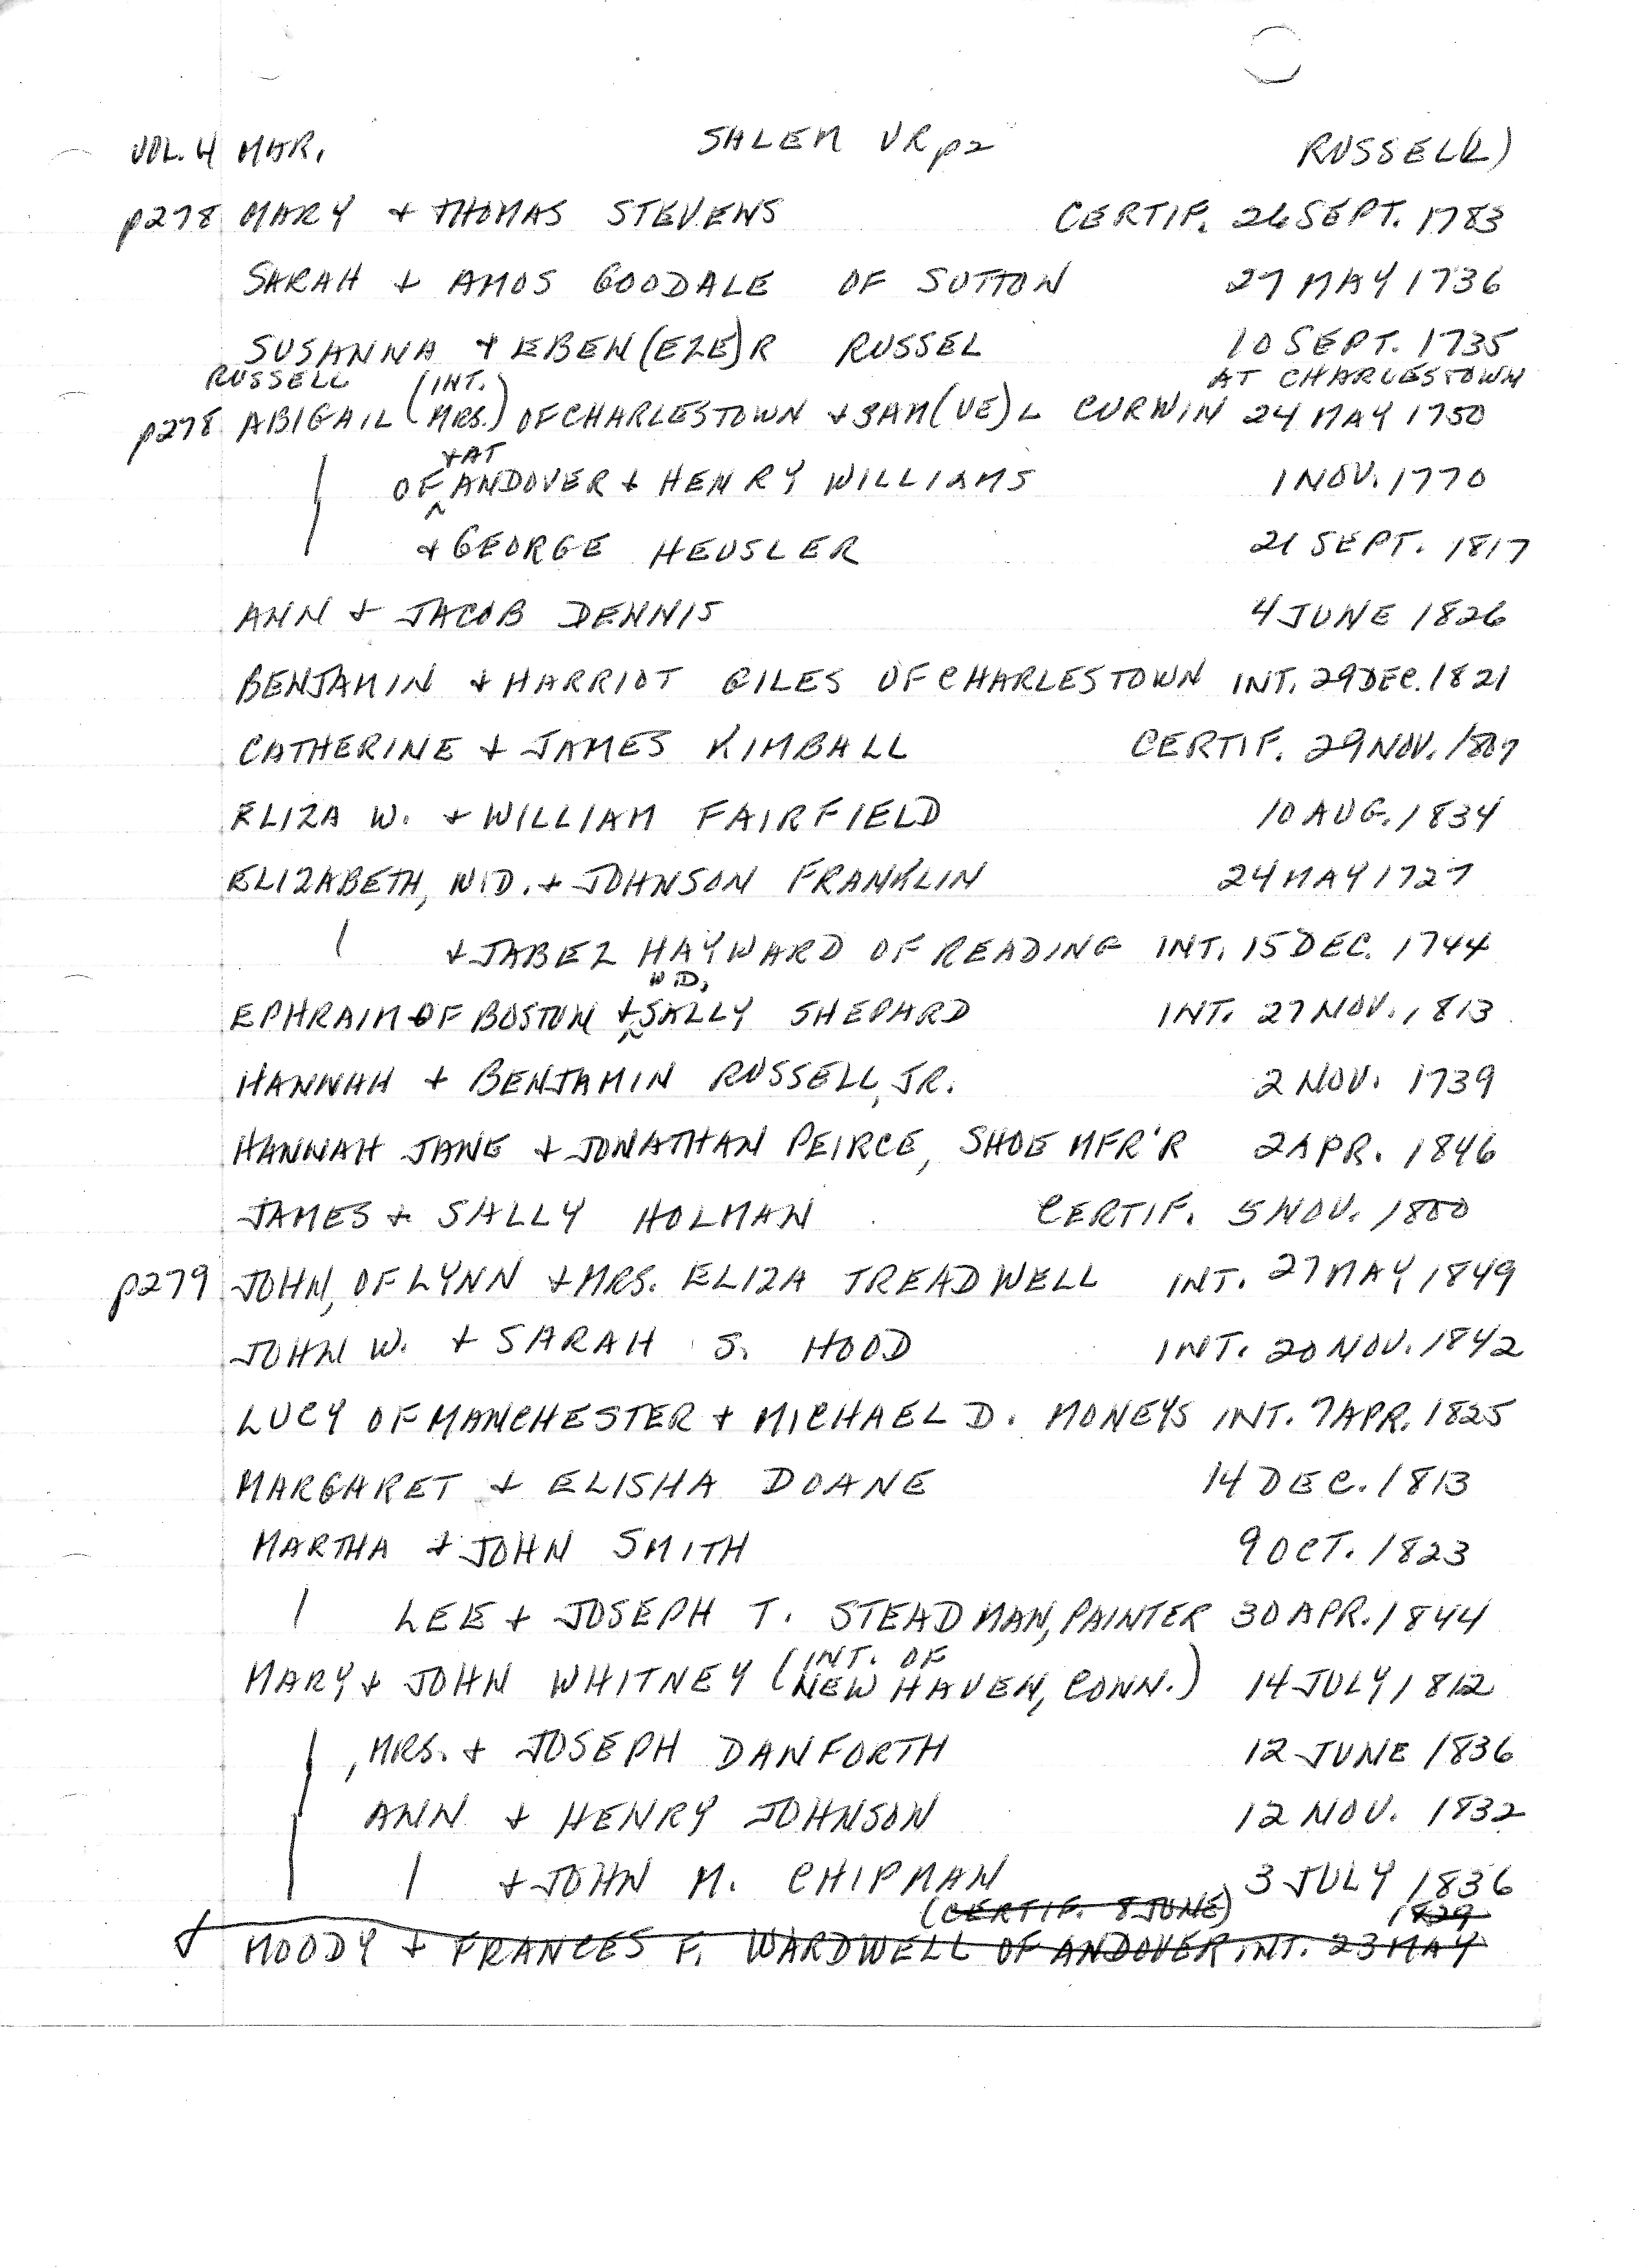 VOL. 4 MAR. SALEM VR p2 RUSSEL(L)
p278 MARY + THOMAS STEVENS CERTIF. 26 SEPT. 1783
SARAH + AMOS GOODALE OF SUTTON 27 MAY 1736
SUSANNA + EBEN(EZE)R RUSSEL 10 SEPT. 1735
RUSSELL (INT. AT CHARLESTOWN
p278 ABIGAIL (MRS.) OF CHARLESTOWN + SAM(UE)L CURWIN 24 MAY 1750
+ AT
OF ^ ANDOVER + HENRY WILLIAMS 1 NOV. 1770
+ GEORGE HEUSLER 21 SEPT. 1817
ANN + JACOB DENNIS 4 JUNE 1826
BENJAMIN + HARRIOT GILES OF CHARLESTOWN INT. 29 DEC. 1821
CATHERINE + JAMES KIMBALL CERTIF. 29 NOV. 1807
ELIZA W. + WILLIAM FAIRFIELD 10 AUG. 1834
ELIZABETH, WID. + JOHNSON FRANKLIN 24 MAY 1727
+ JABEZ HAYWARD OF READING INT. 15 DEC. 1744
WID.
EPHRAIM OF BOSTON + ^ SALLY SHEPARD INT. 27 NOV. 1813
HANNAH + BENJAMIN RUSSELL, JR. 2 NOV. 1739
HANNAH JANE + JONATHAN PEIRCE, SHOE MFR'R 2 APR. 1846
JAMES + SALLY HOLMAN CERTIF. 5 NOV. 1800
p279 JOHN, OF LYNN + MRS. ELIZA TREADWELL INT. 27 MAY 1849
JOHN W. + SARAH S. HOOD INT. 20 NOV. 1842
LUCY OF MANCHESTER + MICHAEL D. MONEYS INT. 7 APR. 1825
MARGARET + ELISHA DOANE 14 DEC. 1813
MARTHA + JOHN SMITH 9 OCT. 1823
LEE + JOSEPH T. STEADMAN, PAINTER 30 APR. 1844
(INT. OF
MARY + JOHN WHITNEY NEW HAVEN, CONN.) 14 JULY 1812
, MRS. + JOSEPH DANFORTH 12 JUNE 1836
ANN + HENRY JOHNSON 12 NOV. 1832
+ JOHN M. CHIPMAN 3 JULY 1836
(CERTIF. 8 JUNE) 1829
MOODY + FRANCES F. WARDWELL OF ANDOVER INT. 23 MAY